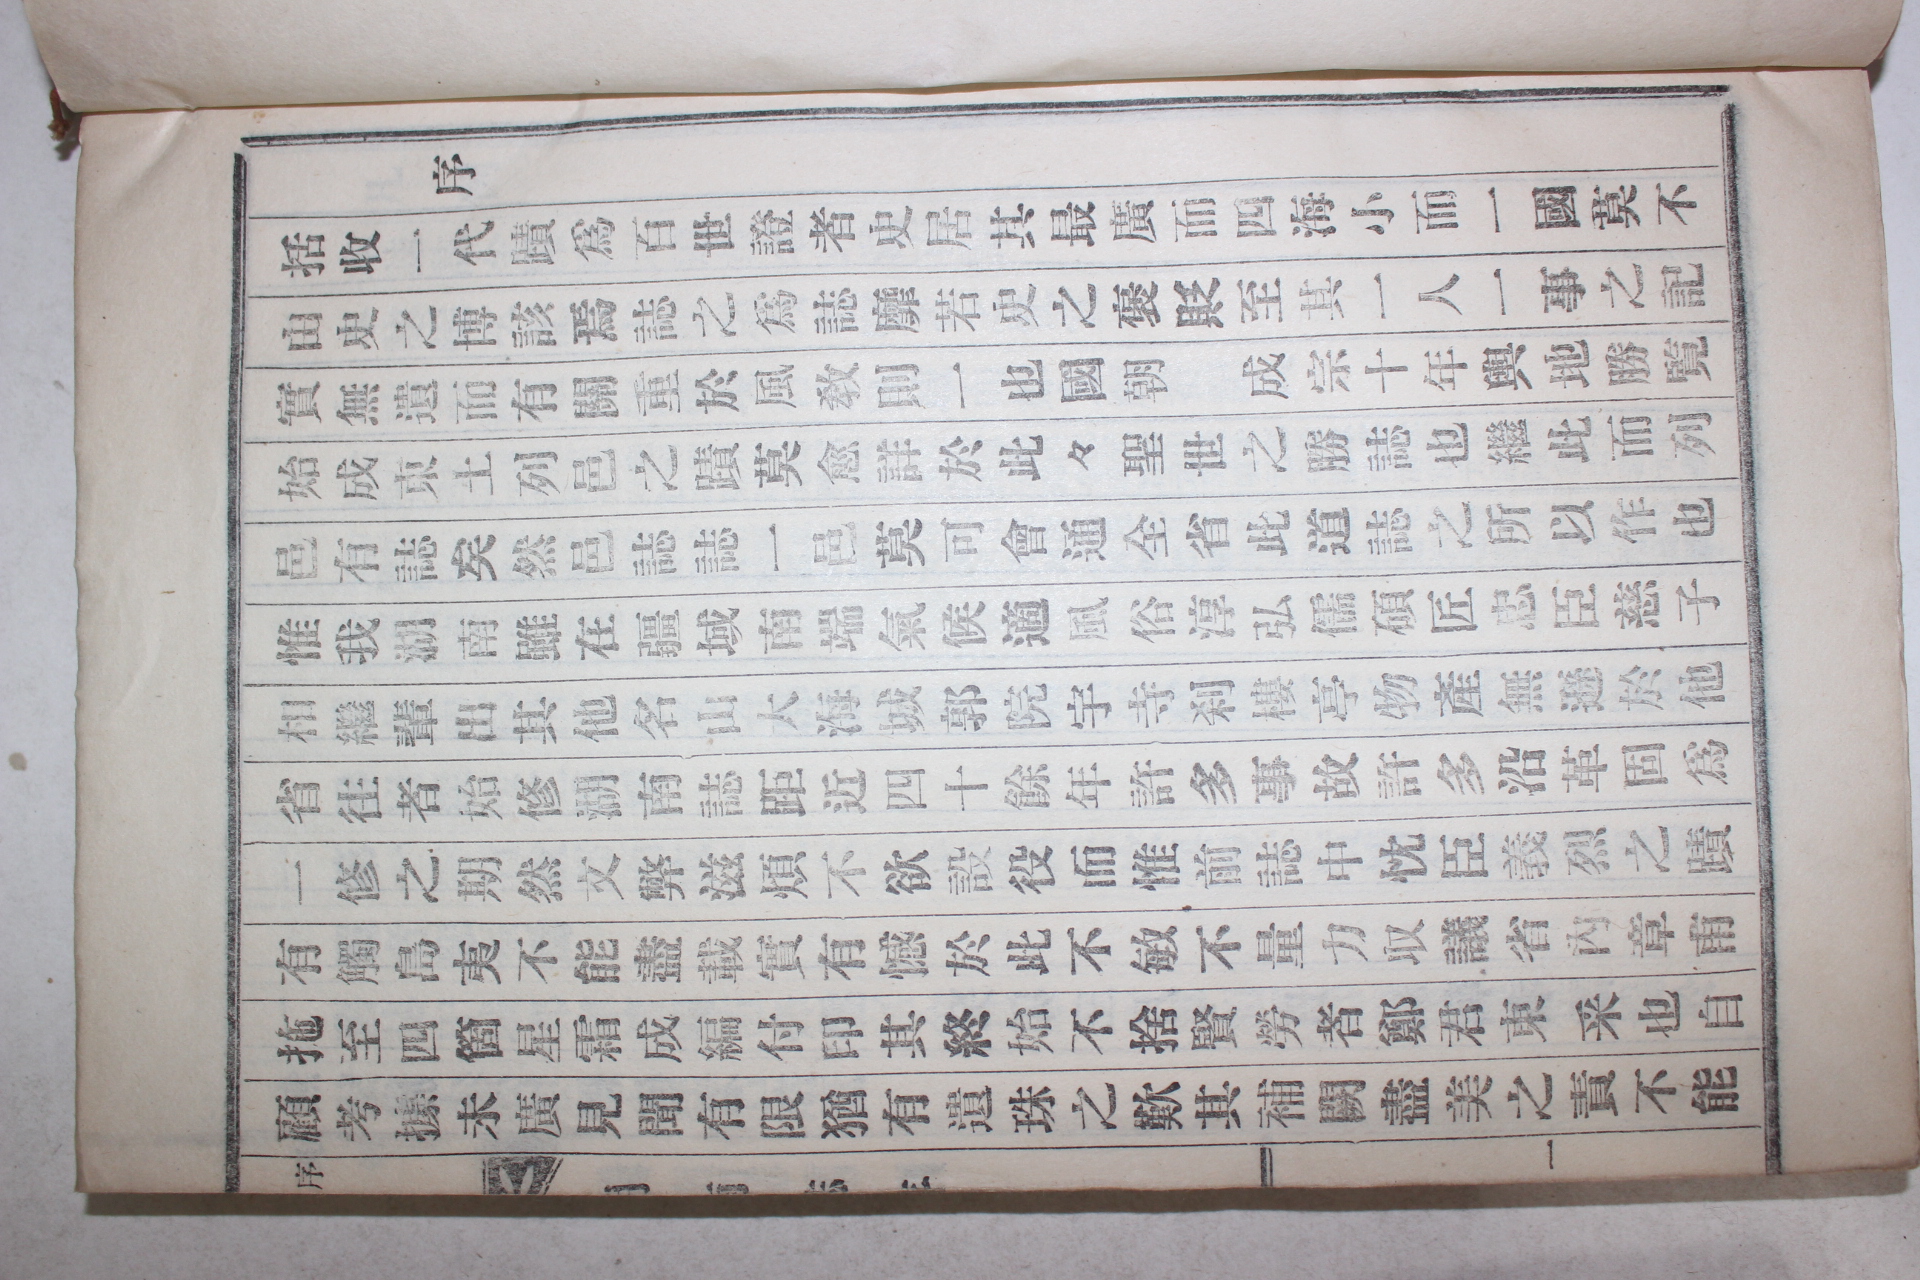 序
括收一代蹟爲百世證者史居其最廣而四海小而一國莫不
由史之博該焉誌之爲誌靡若史之褒貶至其一人一事之記
實無遺而有關重於風教則一也國朝 成宗十年輿地勝覧
始成東土列邑之蹟莫愈詳於此々聖世之勝誌也繼此而列
邑有誌矣然邑誌誌一邑莫可會通全省此道誌之所以作也
惟我湖南雖在疆域南端氣候適風俗淳弘儒碩匠忠臣慈子
相繼輩出其他名山大海城郭院宇寺刹樓亭物產無遜於他
省往者始修湖南誌距近四十餘年許多事故許多沿革固爲
一修之期然文弊滋煩不欲設役而惟前誌中忱臣義烈之蹟
有觸島夷不能盡載實有憾於此不敏不量力収議省內章甫
拖至四箇星霜成編付印其終始不捨賢勞者鄭君東采也自
顧考據未廣見聞有限猶有遺珠之歎其補闕盡美之責不能
序
一